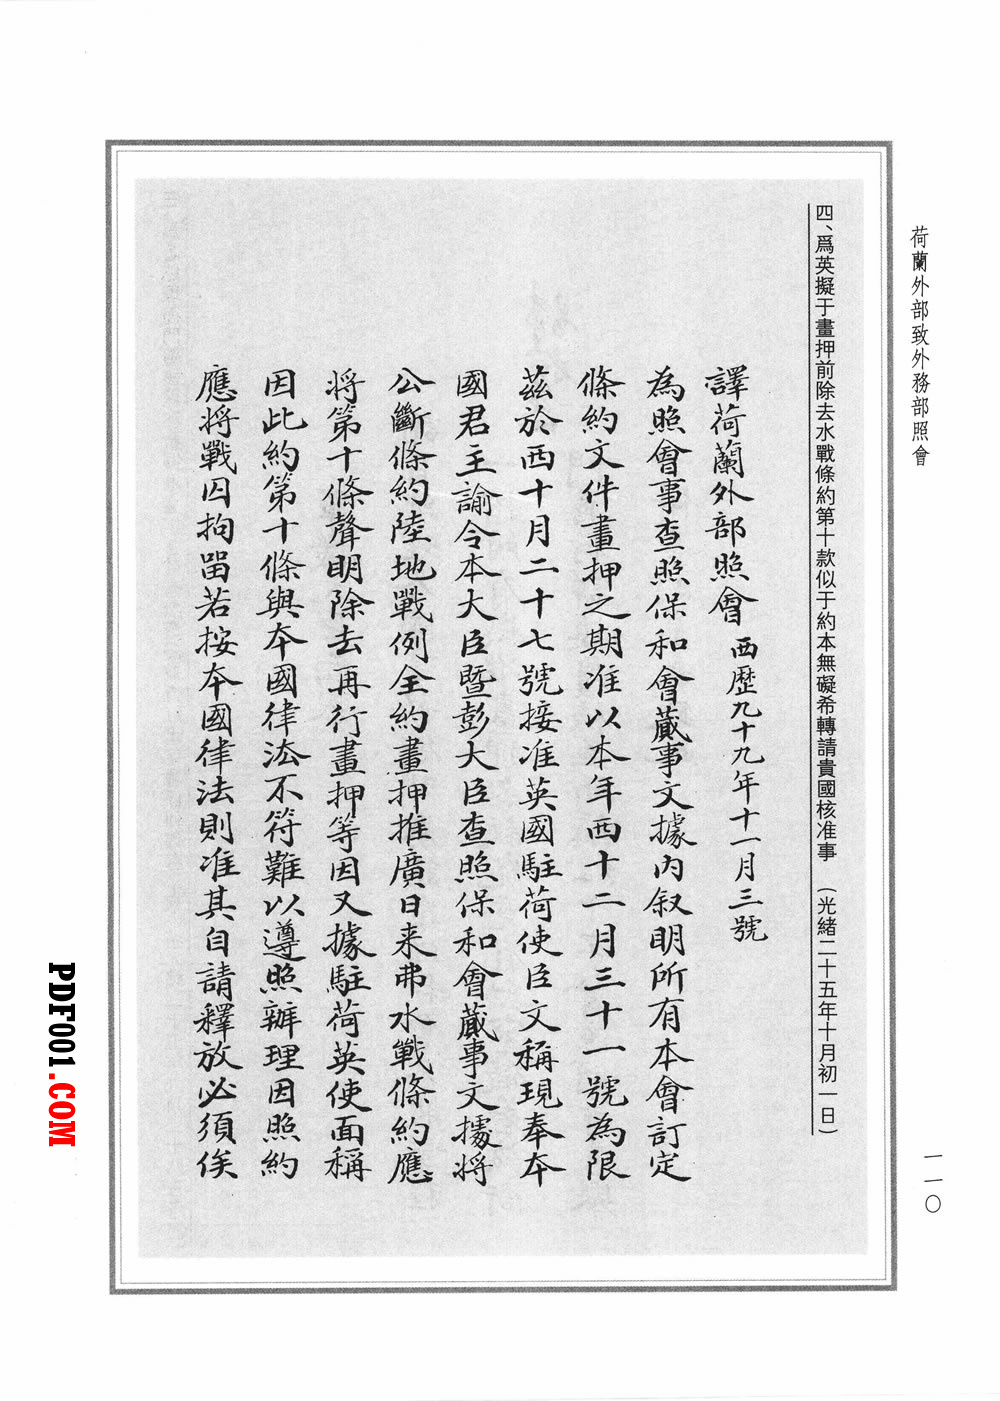 荷蘭外部致外務部照會
一一〇
四、爲英擬于畫押前除去水戰條約第十款似于約本無礙希轉請貴國核准事 （光緒二十五年十月初一日）
譯荷蘭外部照會 西歷九十九年十一月三號
為照會事查照保和會蕆事文據內叙明所有本會訂定
條約文件畫押之期准以本年西十二月三十一號為限
茲於西十月二十七號接准英國駐荷使臣文稱現奉本
國君主諭令本大臣暨彭大臣查照保和會蕆事文據將
公斷條約陸地戰例全約畫押推廣日来弗水戰條約應
將第十條聲明除去再行畫押等因又據駐荷英使面稱
因此約第十條與本國律法不符難以遵照辦理因照約
應將戰囚拘留若按本國律法則准其自請釋放必須俟
PDF001.COM